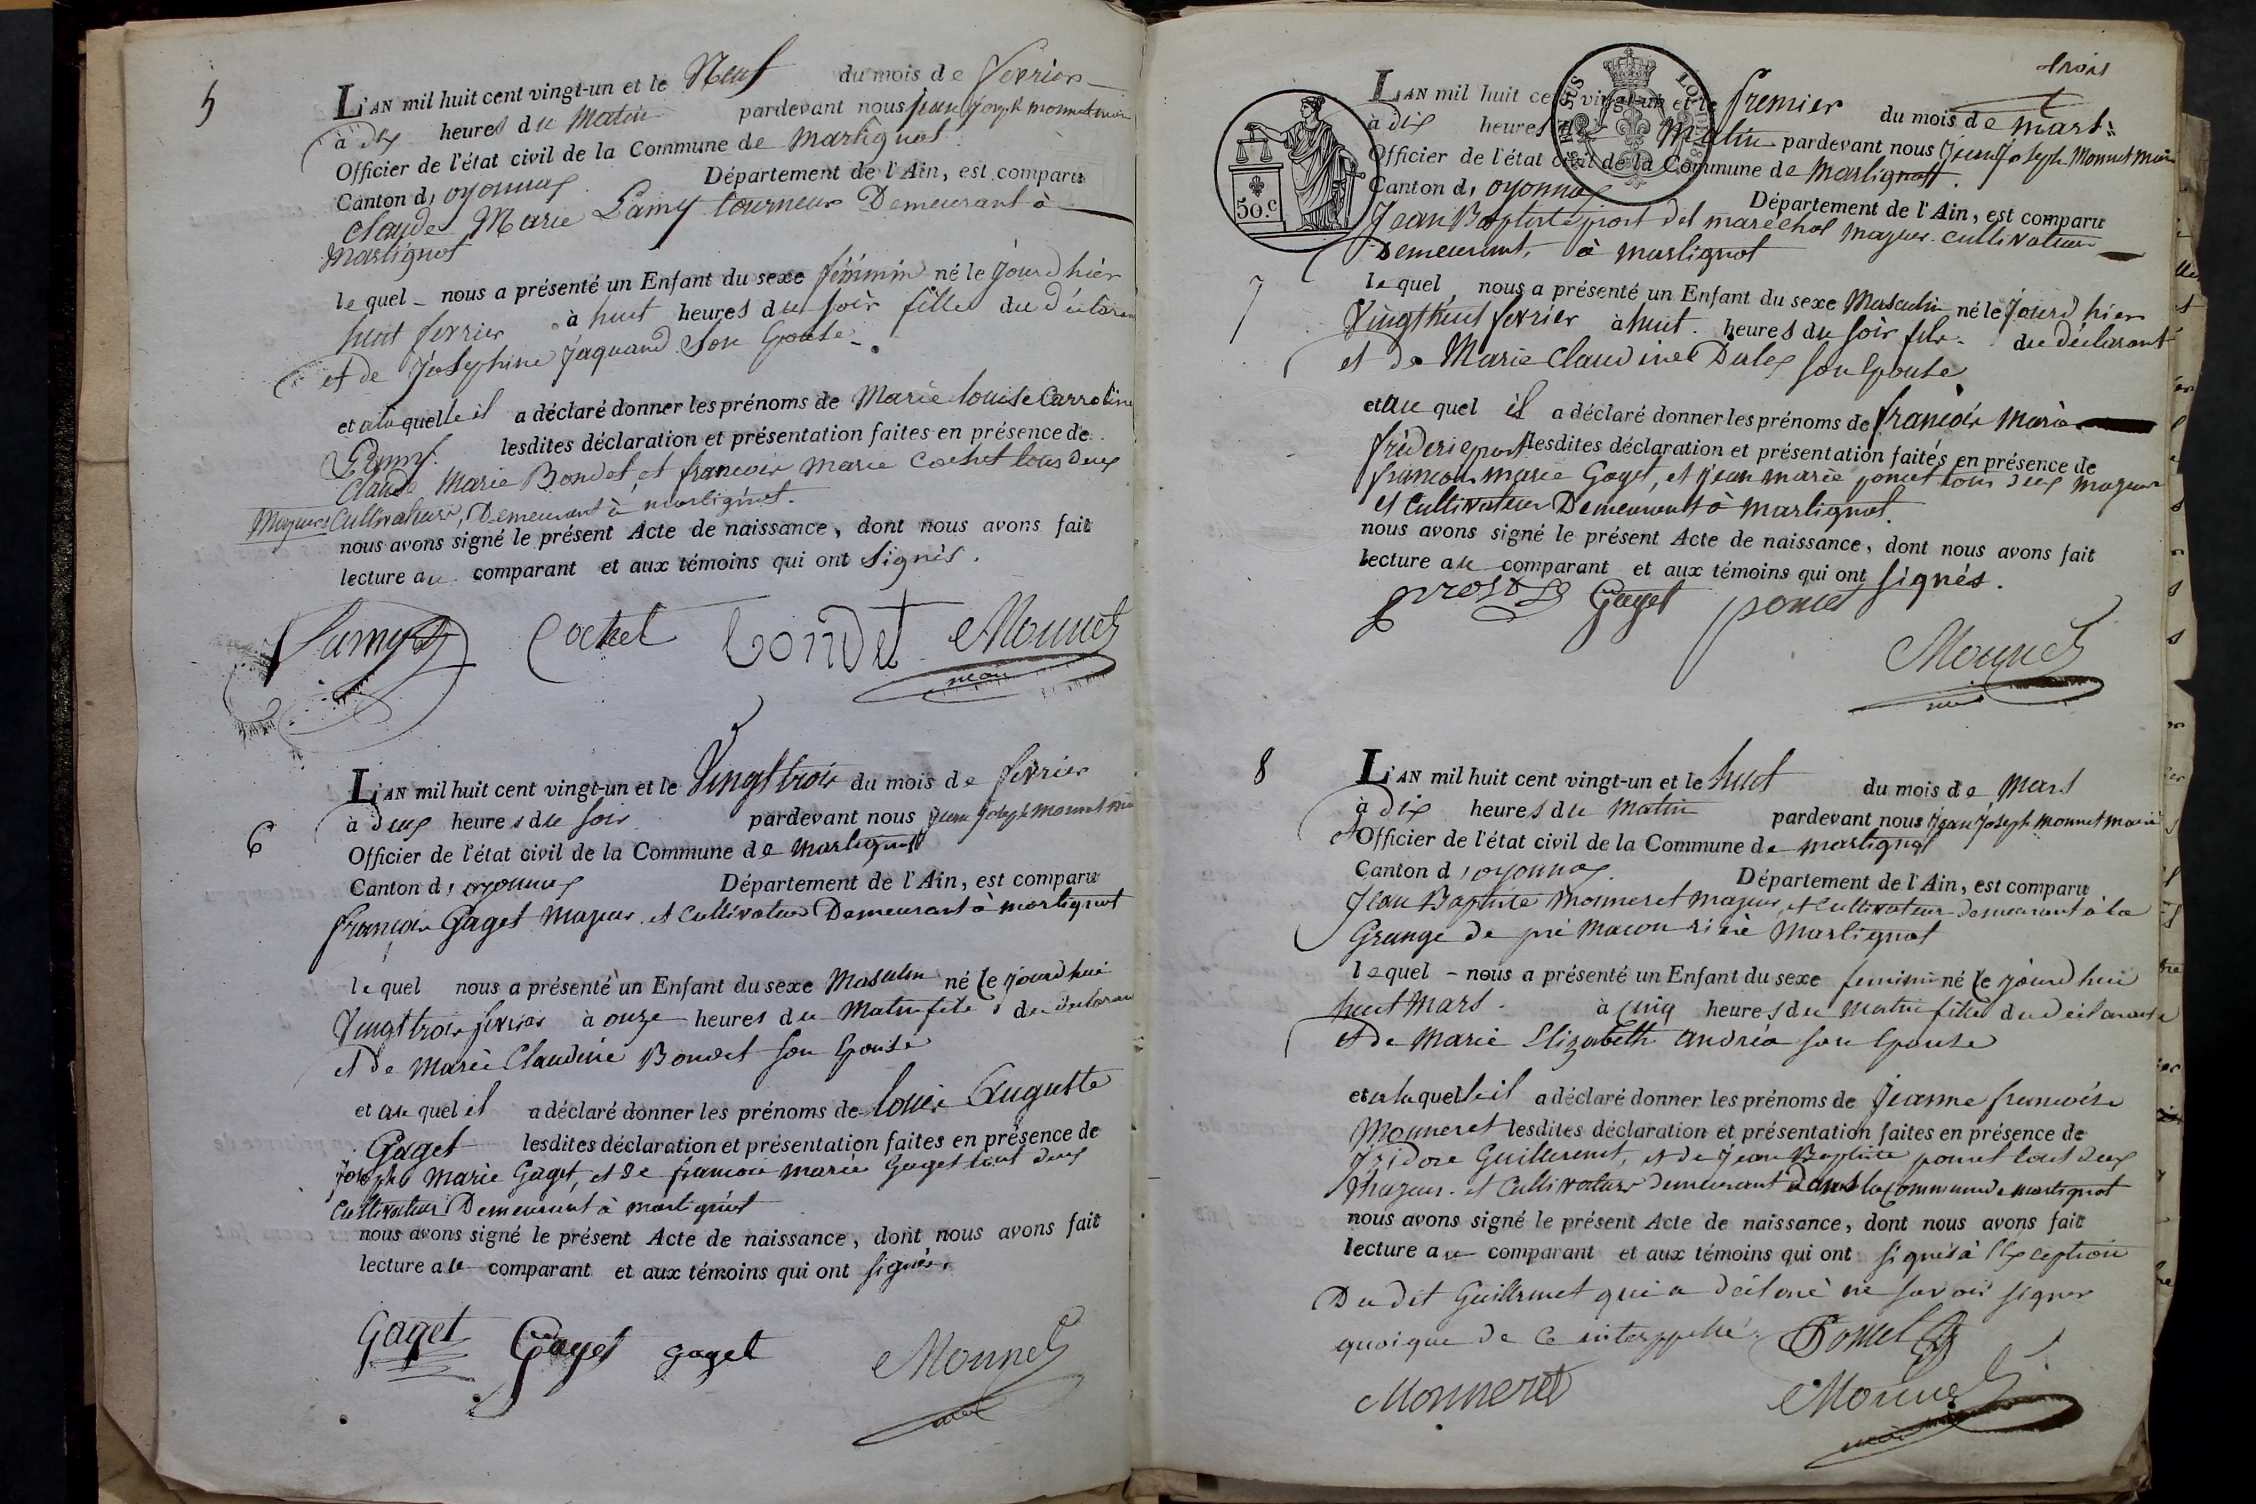 5
L'AN mil huit cent vingt-un et le Neuf du mois de fevrier
à dix heures du Matin pardevant nous jean joseph monnet maire
Officier de l'état civil de la Commune de Martignat
Canton d'oyonnax Département de l'Ain, est comparu
Claude Marie Lamy tourneur Demeurant à
Martignat
le quel nous a présenté un Enfant du sexe féminin né le jourd hier
huit fevrier à huit heures du soir fille du déclarant
et de Joséphine Jaquand son Epouse
et a la quelle il a déclaré donner les prénoms de Marie louise Carroline
Lamy lesdites déclaration et présentation faites en présence de
Claude Marie Bondet, et francois Marie Cochet tous deux
Majeurs Cultivateurs, Demeurant à martignat.
nous avons signé le présent Acte de naissance, dont nous avons fait
lecture au comparant et aux témoins qui ont signés.
Lamy Cochet bondet Monnet
maire
6
L'AN mil huit cent vingt-un et le Vingt trois du mois de fevrier
à deux heures du soir pardevant nous jean joseph monnet maire
Officier de l'état civil de la Commune de martignat
Canton d'oyonnax Département de l'Ain, est comparu
françois Gaget Majeur et Cultivateur Demeurant à martignat
le quel nous a présenté un Enfant du sexe Masculin né le jourd hui
Vingt trois fevrier à onze heures du Matin fils du déclarant
et de Marie Claudine Bondet son Epouse
et au quel il a déclaré donner les prénoms de louis Auguste
Gaget lesdites déclaration et présentation faites en présence de
Joseph Marie Gaget, et de francois marie Gaget tout deux
Cultivateurs Demeurant à martignat
nous avons signé le présent Acte de naissance, dont nous avons fait
lecture au comparant et aux témoins qui ont signés.
Gaget Gaget gaget Monnet
trois
50.c
7
L'AN mil huit cent vingt-un et le premier du mois de mars
à dix heures du Matin pardevant nous jean joseph Monnet Maire
Officier de l'état civil de la Commune de Martignat.
Canton d'oyonnax Département de l'Ain, est comparu
Jean Baptiste prost dit maréchal majeur cultivateur
Demeurant, à martignat
le quel nous a présenté un Enfant du sexe Masculin né le jourd hier
Vingt huit fevrier à huit heures du soir fils du déclarant
et de Marie Claudine son Epouse
et au quel il a déclaré donner les prénoms de françois Marie
fréderic prost lesdites déclaration et présentation faites en présence de
francois marie Gaget, et jean marie ponçet tous deux majeurs
et Cultivateurs Demeurants à Martignat.
nous avons signé le présent Acte de naissance, dont nous avons fait
lecture au comparant et aux témoins qui ont signés.
prost Gaget poncet
Monnet
8
L'AN mil huit cent vingt-un et le huit du mois de Mars
à dix heures du Matin pardevant nous Jean Joseph Monnet Maire
et Officier de l'état civil de la Commune de martignat
Canton d'oyonnax. Département de l'Ain, est comparu
Jean Baptiste Monneret majeur, et Cultivateur demeurant à la
Grange de pré Martignat
le quel nous a présenté un Enfant du sexe feminin né le jourd hui
huit Mars à cinq heures du Matin fille du déclarant
et de Marie Elizabeth andréa son Epouse
et a la quelle il a déclaré donner les prénoms de Jeanne francoise
Monneret lesdites déclaration et présentation faites en présence de
Izidore Guillermet, et de Jean Baptiste poncet tout deux
Majeurs et Cultivateurs demeurant dans la Commune de martignat
nous avons signé le présent Acte de naissance, dont nous avons fait
lecture au comparant et aux témoins qui ont signés à l'Exception
Du dit Guillermet qui a déclaré ne savoir signer
quoique de ce interppellé. Poncet
Monneret Monnet
maire